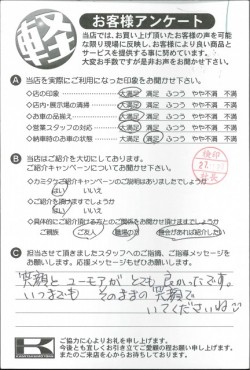 軽
お客様アンケート
当店では、お買い上げ頂いたお客様の声を可能
な限り現場に反映し、お客様により良い商品と
サービスを提供する事に努めています。
大変お手数ですが是非お声をお聞かせ下さい。
A 当店を実際にご利用になった印象をお聞かせ下さい。
◇店の印象 大満足 満足 ふつう やや不満 不満
◇店内・展示場の清掃 大満足 満足 ふつう やや不満 不満
◇お車の品揃え 大満足 満足 ふつう やや不満 不満
◇営業スタッフの対応 大満足 満足 ふつう やや不満 不満
◇納車時のお車の状態 大満足 満足 ふつう やや不満 不満
B 当店はご紹介を大切にしております。
ご紹介キャンペーンについてお聞かせ下さい。
◇カミタケご紹介キャンペーンのご説明はありましたでしょうか
はい いいえ
◇ご紹介をお友達にして頂けますでしょうか
はい いいえ
◇具体的にご紹介頂ける方とのご関係をお聞かせ頂けますでしょうか
ご親族 ご友人 職場の方 機会があれば紹介したい
検印
社長
C 担当させて頂きましたスタッフへのご指摘、ご指導メッセージを
お願いします。応援メッセージもぜひお願いします。
笑顔とユーモアがとても良かったです。
いつまでも そのままの笑顔で
いてくださいね
K
ご協力に心よりお礼を申し上げます。
今後とも宜しくお引き立てご愛顧の程お願い申し上げます。
またのご来店を心からお待ちしております。